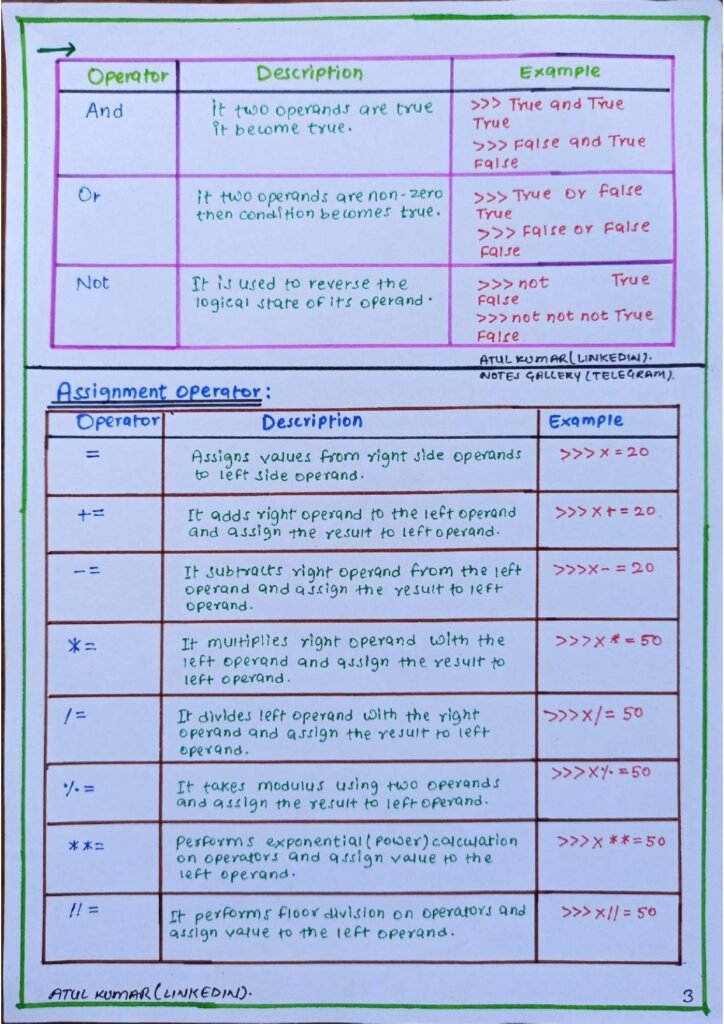 Operator Description Example
And
it two operands are true
it become true.
>>> True and True
True
>>> False and True
False
Or
it two operands are non-zero
then condition becomes true.
>>> True or false
True
>>> False or False
False
Not
It is used to reverse the
logical state of its operand.
>>> not True
False
>>> not not not True
False
ATUL KUMAR (LINKEDIN).
NOTES GALLERY (TELEGRAM).
Assignment operator:
Operator Description Example
=
Assigns values from right side operands
to left side operand.
>>> x = 20
+=
It adds right operand to the left operand
and assign the result to left operand.
>>> x + = 20
-=
It subtracts right operand from the left
operand and assign the result to left
operand.
>>> x - = 20
*=
It multiplies right operand with the
left operand and assign the result to
left operand.
>>> x * = 50
/=
It divides left operand with the right
operand and assign the result to left
operand.
>>> x / = 50
%=
It takes modulus using two operands
and assign the result to left operand.
>>> x % = 50
**=
Performs exponential (power) calculation
on operators and assign value to the
left operand.
>>> x ** = 50
//=
It performs floor division on operators and
assign value to the left operand.
>>> x // = 50
ATUL KUMAR (LINKEDIN).
3